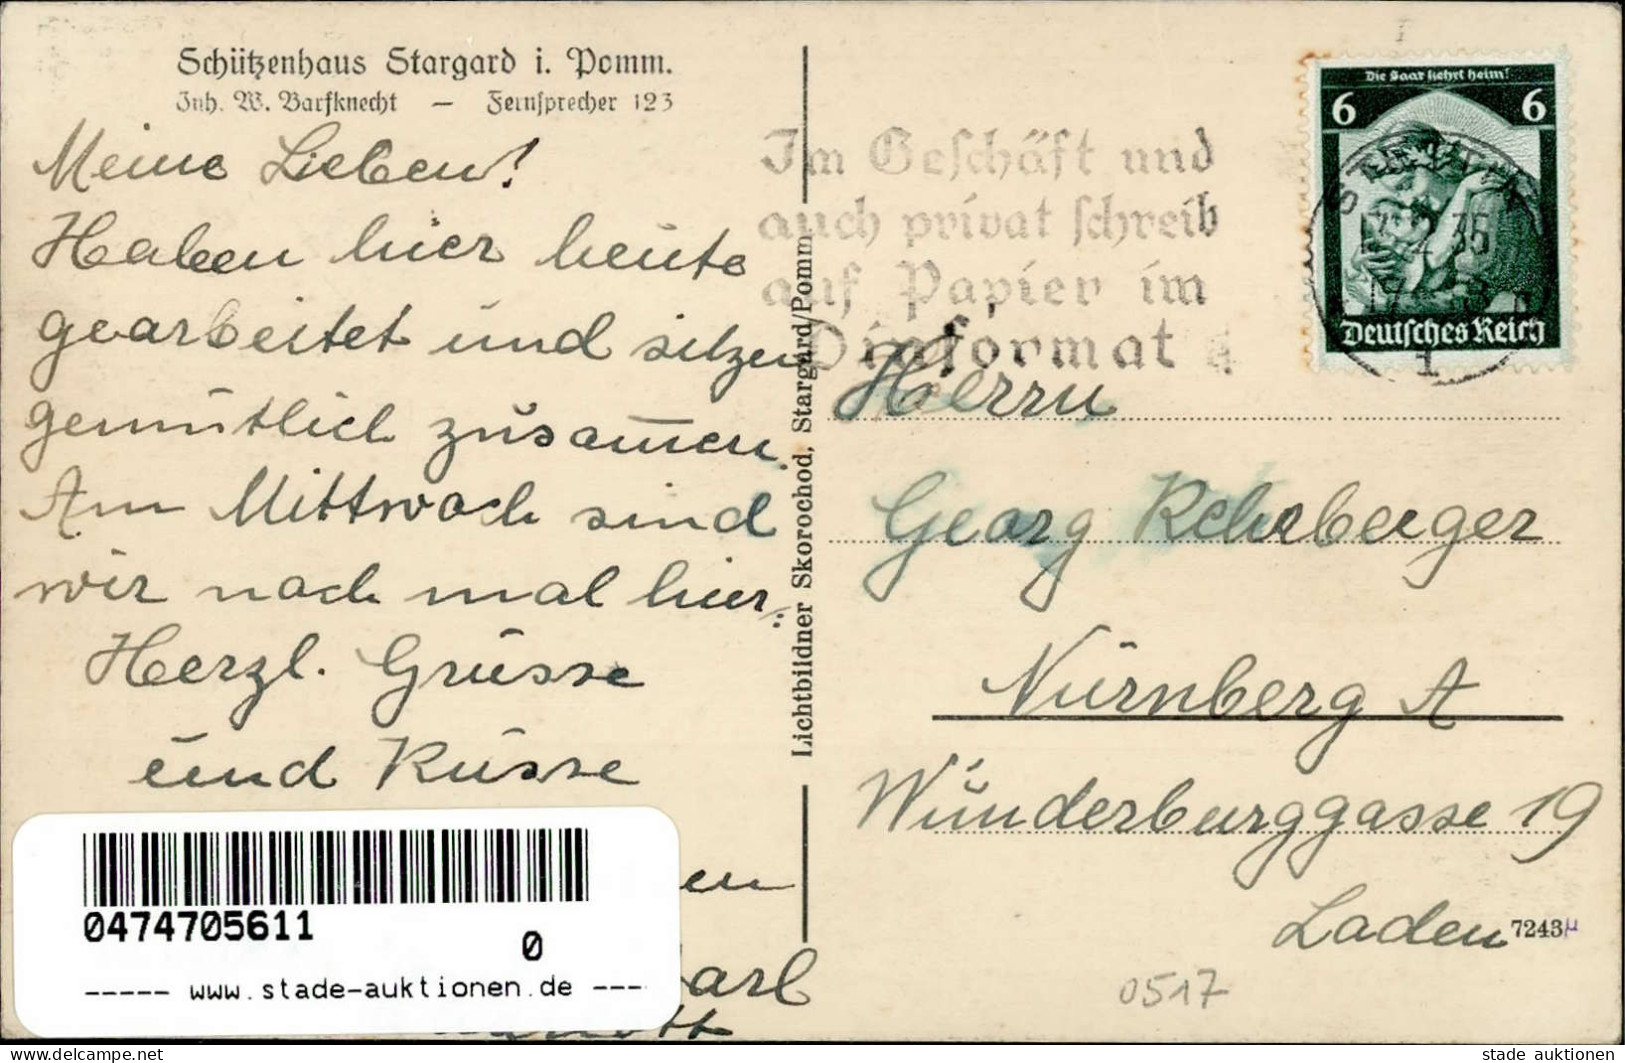 Schützenhaus Stargard i. Pomm.
Inh. W. Barfknecht — Fernsprecher 123
Meine Lieben!
Haben hier heute
gearbeitet und sitzen
gemütlich zusammen.
Am Mittwoch sind
wir noch mal hier.
Herzl. Grüsse
und Küsse
en
arl
Lichtbildner Skorochod, Stargard/Pomm
Im Geschäft und
auch privat schreib
auf Papier im
Dinformat
Die Saar kehrt heim!
6 6
Deutsches Reich
35
1
Herrn
Georg Rehberger
Nürnberg A
Wünderburggasse 19
Laden
7243
0517
0474705611
0
----- www.stade-auktionen.de ---
delcampe.net
stade auktionen